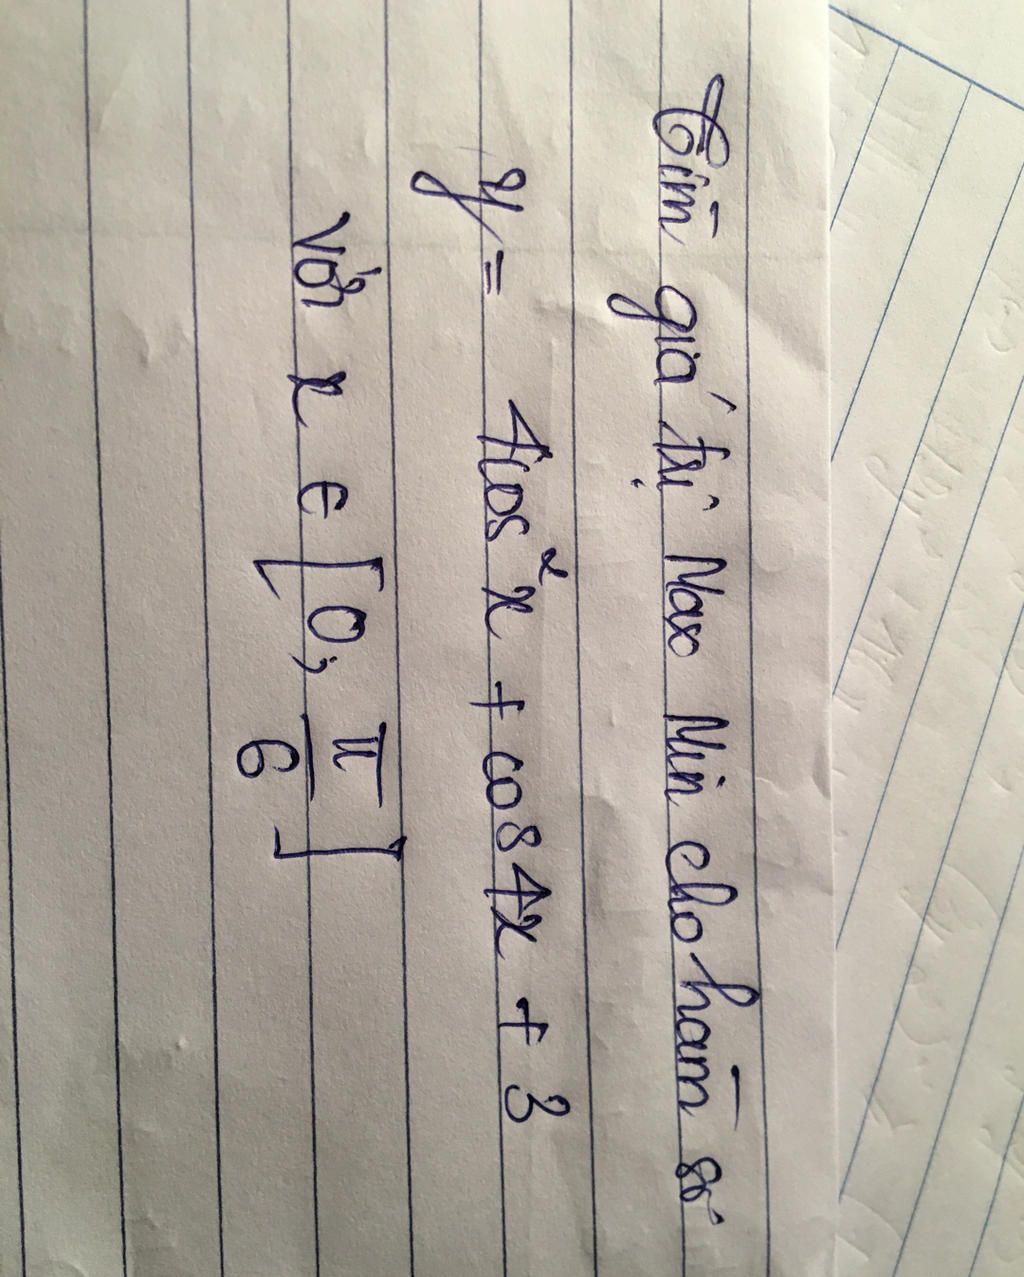 Tìm giá trị Max Min cho hàm số
y = 4cos²x + cos4x + 3
với x ∈ [0; π/6]